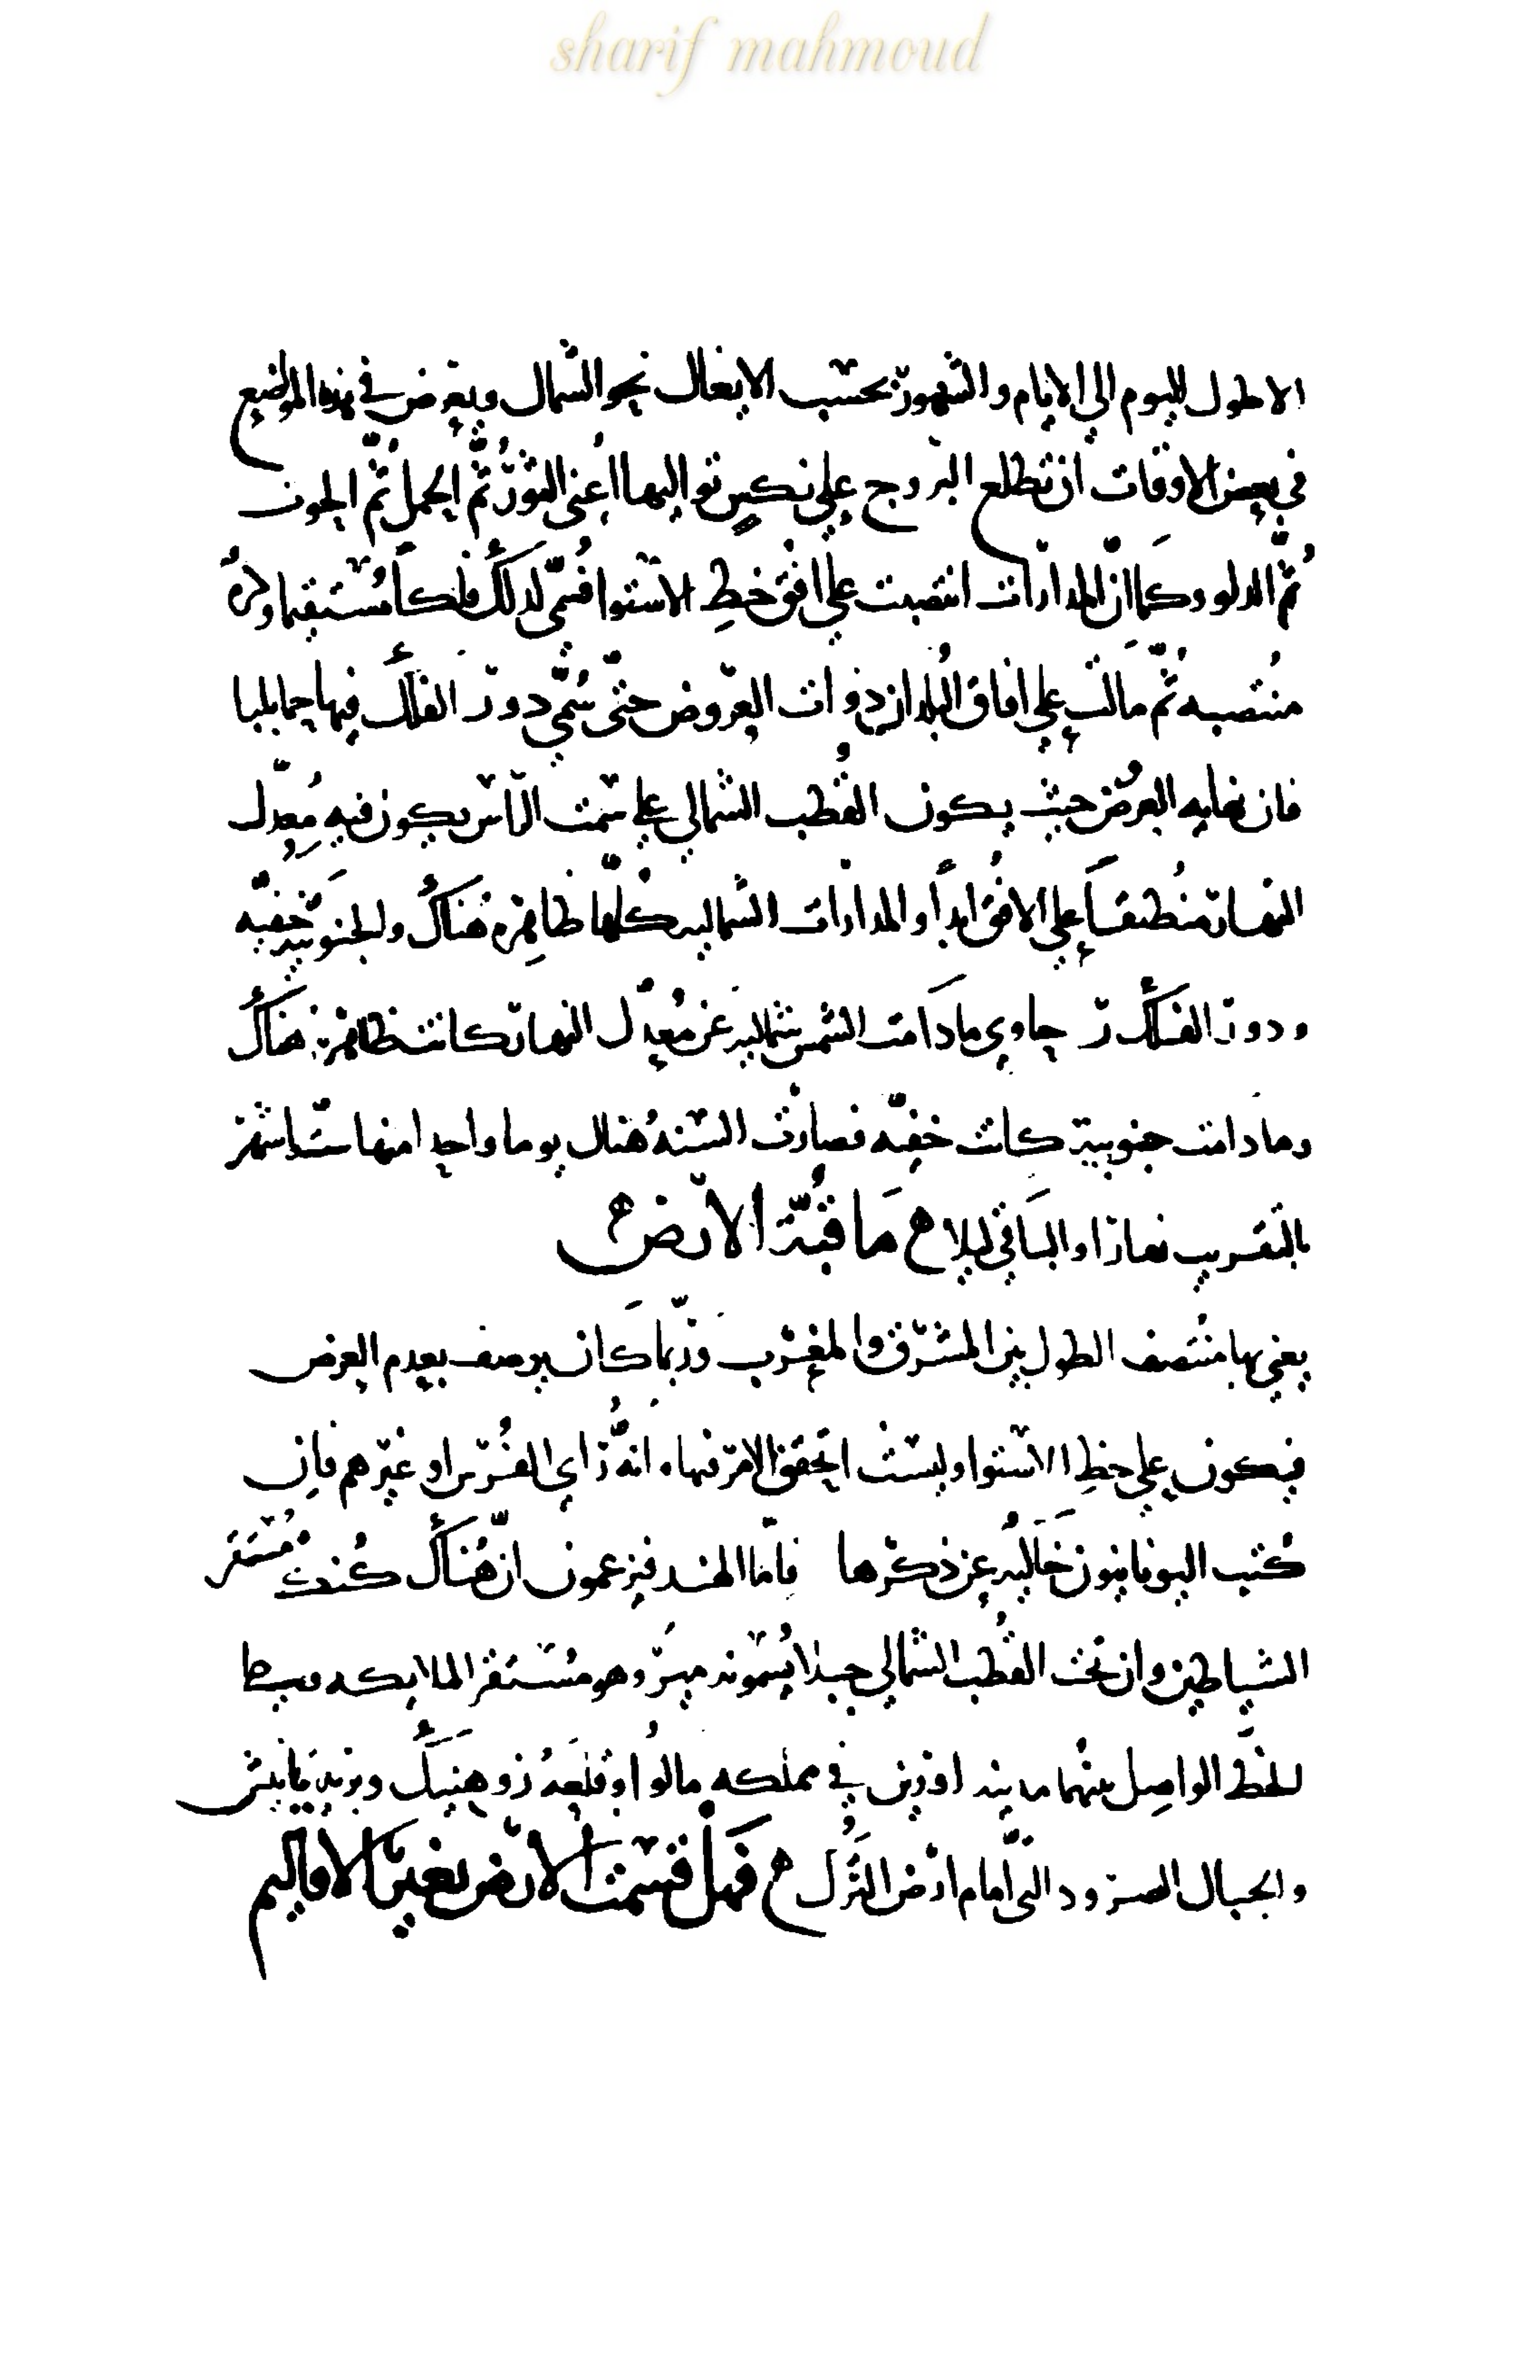 sharif mahmoud
الاطول لليوم الي الايام والشهور بحسب الايغال نحو الشمال ويعرض في هذه المواضع
في بعض الاوقات ان تطلع البروج علي نكس تواليها اعني الثور ثم الحمل ثم الحوت
ثم الدلو وكما ان المدارات انتصبت علي افق خط الاستوا فسمي لذلك فلكا مستقيما وكره
منتصبه ثم مالت علي افاق البلدان ذوات العروض حتي سمي دور الفلك فيها حمايليا
فان نهايه العرض حيث يكون القطب الشمالي علي سمت الراس يكون فيه معدل
النهار منطبقا علي الافق ابدا والمدارات الشماليه كلها ظاهره هناك والجنوبيه خفيه
ودور الفلك رحاوي ما دامت الشمس شماليه عن معدل النهار كانت ظاهرة هناك
وما دامت جنوبية كانت خفيه فصارت السنه هناك يوما واحدا منها ستة اشهر
بالتقريب نهارا والباقي ليلا ما قبة الارض
يعني بها منتصف الطول بين المشرق والمغرب وربما كان يوصف بعدم العرض
فيكون علي خط الاستوا وليست اتحقق الامر فيها انه راي الفرس او غيرهم فان
كتب اليونانيون خاليه عن ذكرها فاما الهند فيزعمون ان هناك كنك مستقر
الشياطين وان تحت القطب الشمالي جبلا يسمونه ميرو هو مستقر الملايكه وسط
للخط الواصل بينهما مدينه اوزين في مملكه مالوا وقلعه روهيتك وبرية تانيشر
والجبال الصرود التي امام ارض الترك فهل قسمت الارض بغير الاقاليم